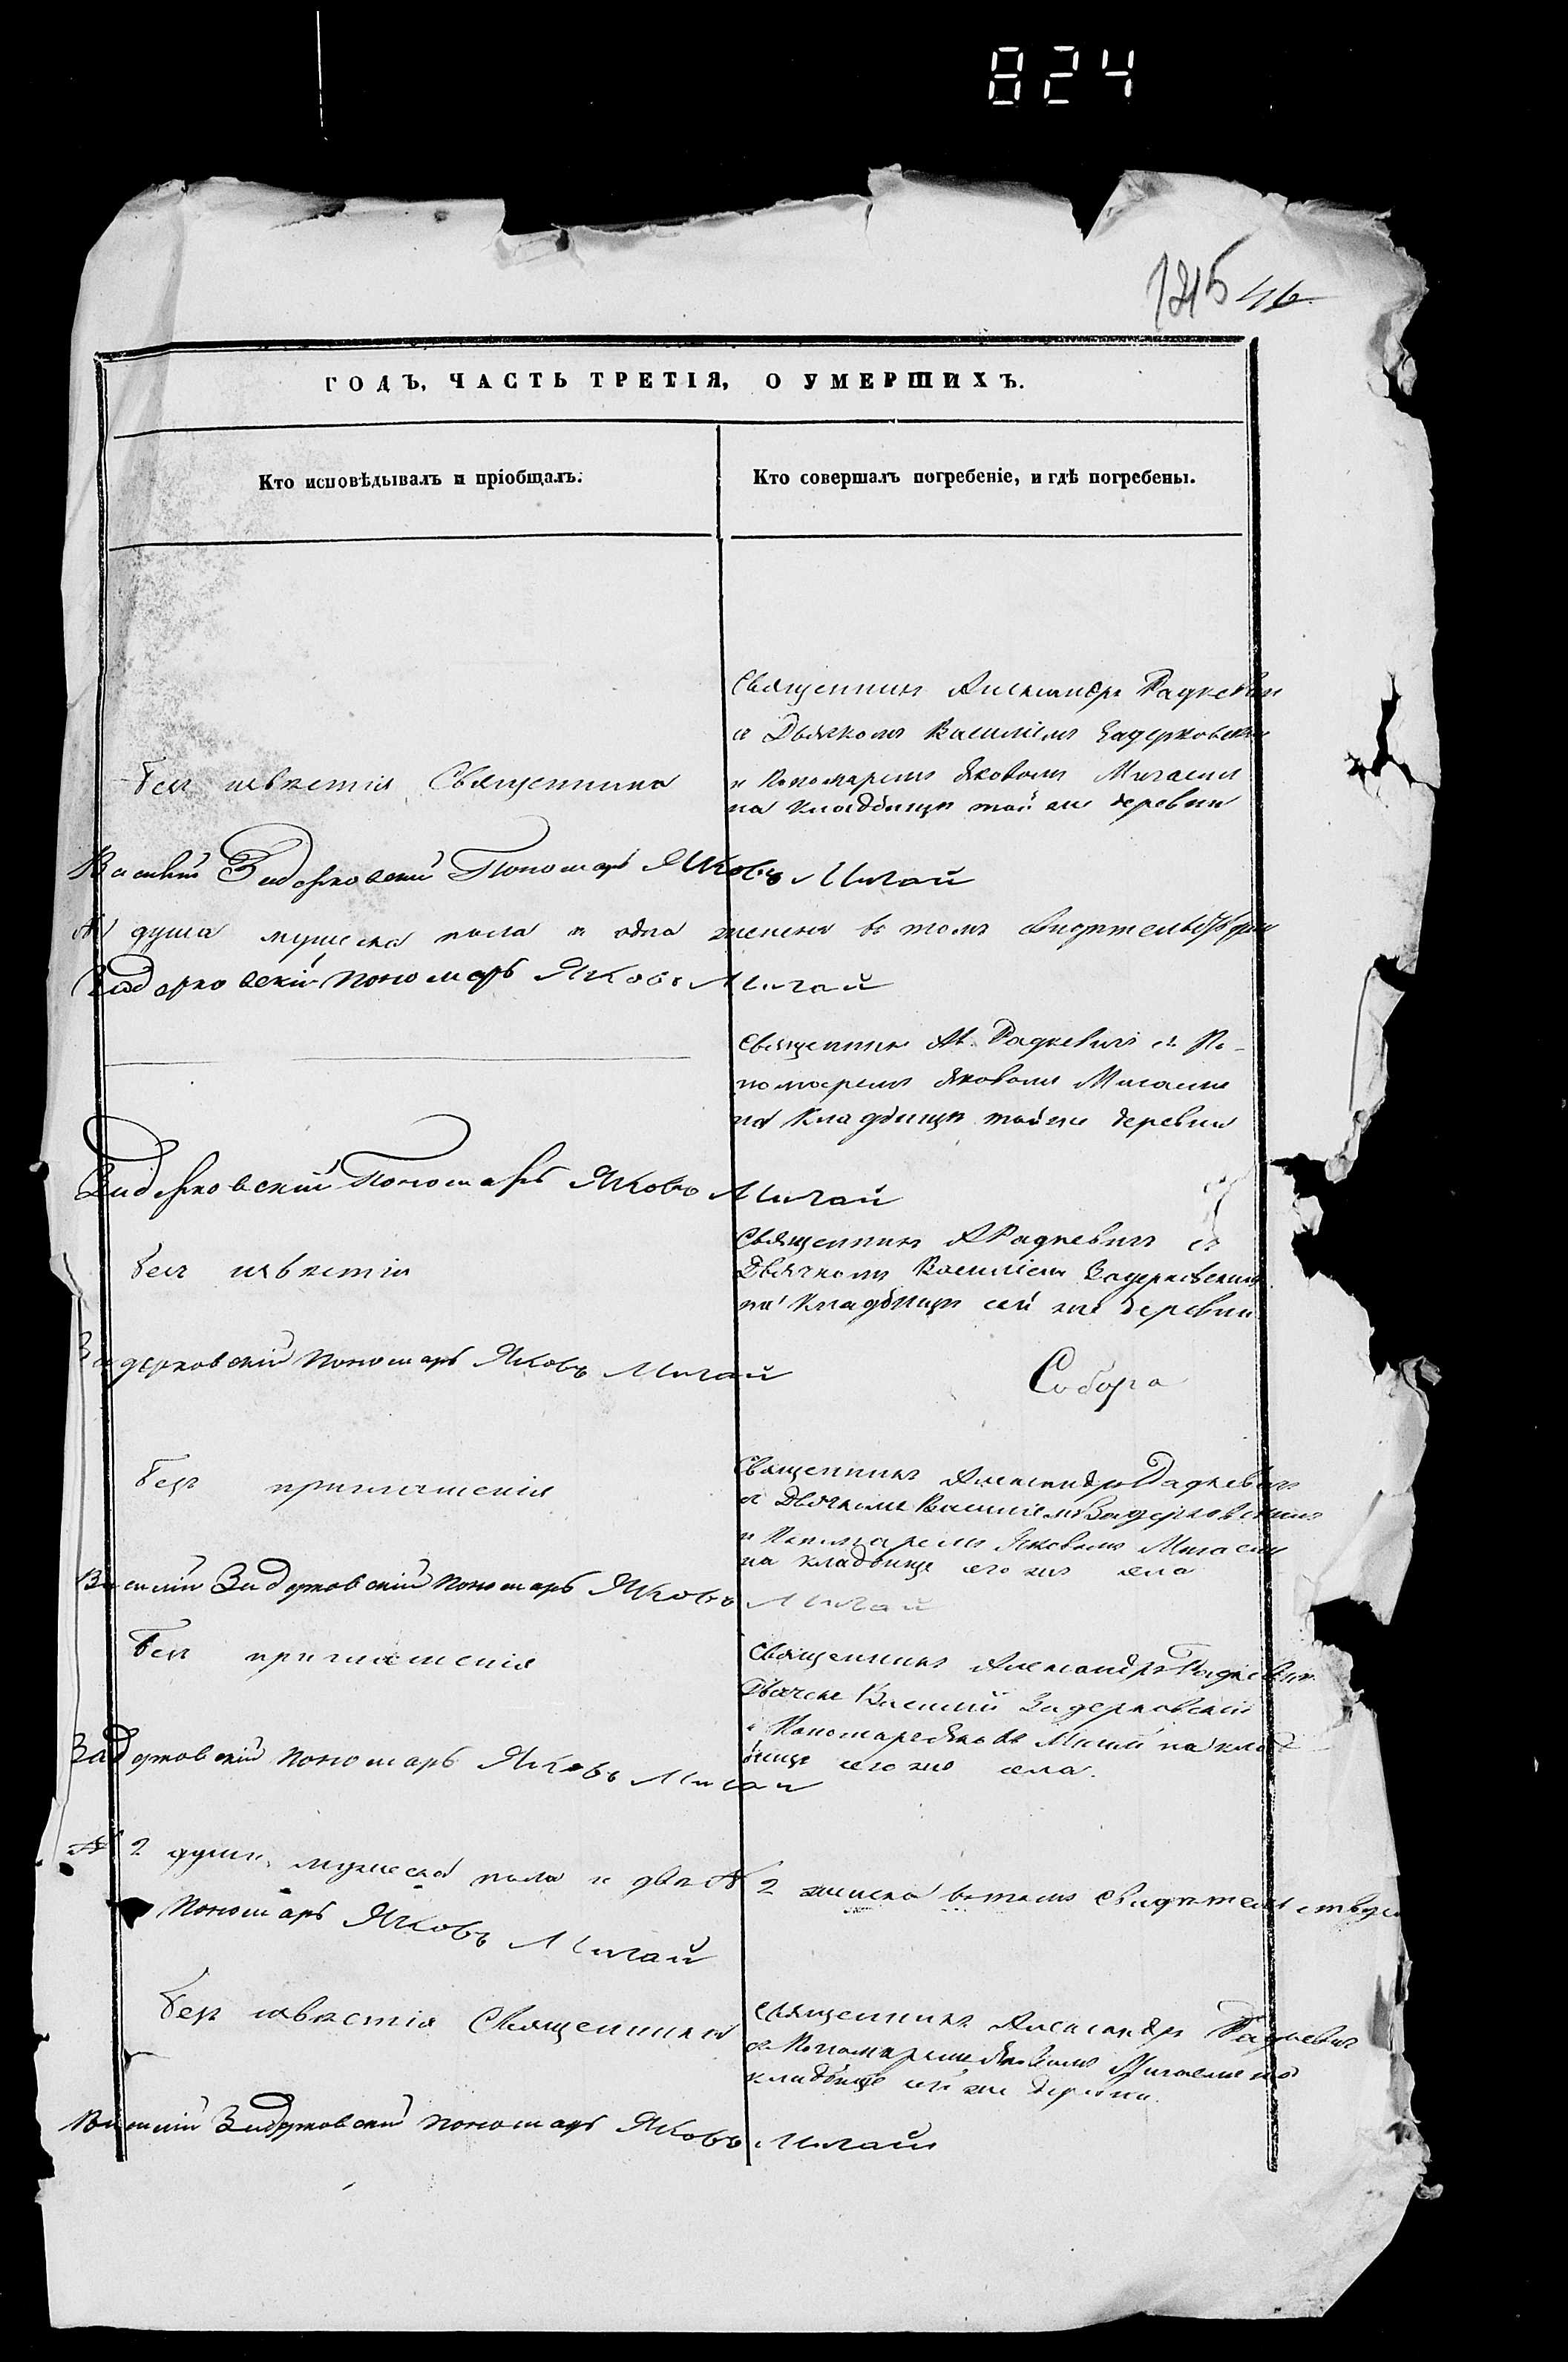 824
1215 46
ГОДЪ, ЧАСТЬ ТРЕТІЯ, О УМЕРШИХЪ.
Кто исповѣдывалъ и пріобщалъ.
Кто совершалъ погребеніе, и гдѣ погребены.
Священникъ Александръ Радкевичъ
съ Дьячкомъ Василіемъ Задерковскимъ
и Пономаремъ Яковомъ Мигаемъ
на кладбищѣ той же деревни
безъ извѣстія Священника
Василій Задерковскій Пономарь Яковъ Мигай
душа мужеска пола и одна женска въ томъ
Задерковскій Пономарь Яковъ Мигай
Священникъ Ал. Радкевичъ съ По-
номаремъ Яковомъ Мигаемъ
на кладбищѣ той же деревни
Задерковскій Пономарь Яковъ Мигай
безъ извѣстія
Священникъ А Радкевичъ съ
Дьячкомъ Василіемъ Задерковскимъ
на кладбищѣ сей же деревни
Задерковскій Пономарь Яковъ Мигай
Собора
безъ приглашенія
Священникъ Александръ Радкевичъ
съ Дьячкомъ Василіемъ Задерковскимъ
и Пономаремъ Яковомъ Мигаемъ
на кладбище сего же села
Василій Задерковскій Пономарь Яковъ Мигай
безъ приглашенія
Священникъ Александръ Радкевичъ
Дьячекъ Василій Задерковскій
и Пономарь Яковъ Мигай на клад
бище сего же села.
Задерковскій Пономарь Яковъ Мигай
2 души мужеска пола и двѣ 2 женска въ томъ свидѣтельствуе
Пономарь Яковъ Мигай
безъ извѣстія Священника
Священникъ Александръ Радкевичъ
съ Пономаремъ Яковомъ Мигаемъ на
кладбище сей же деревни.
Василій Задерковскій Пономарь Яковъ Мигай